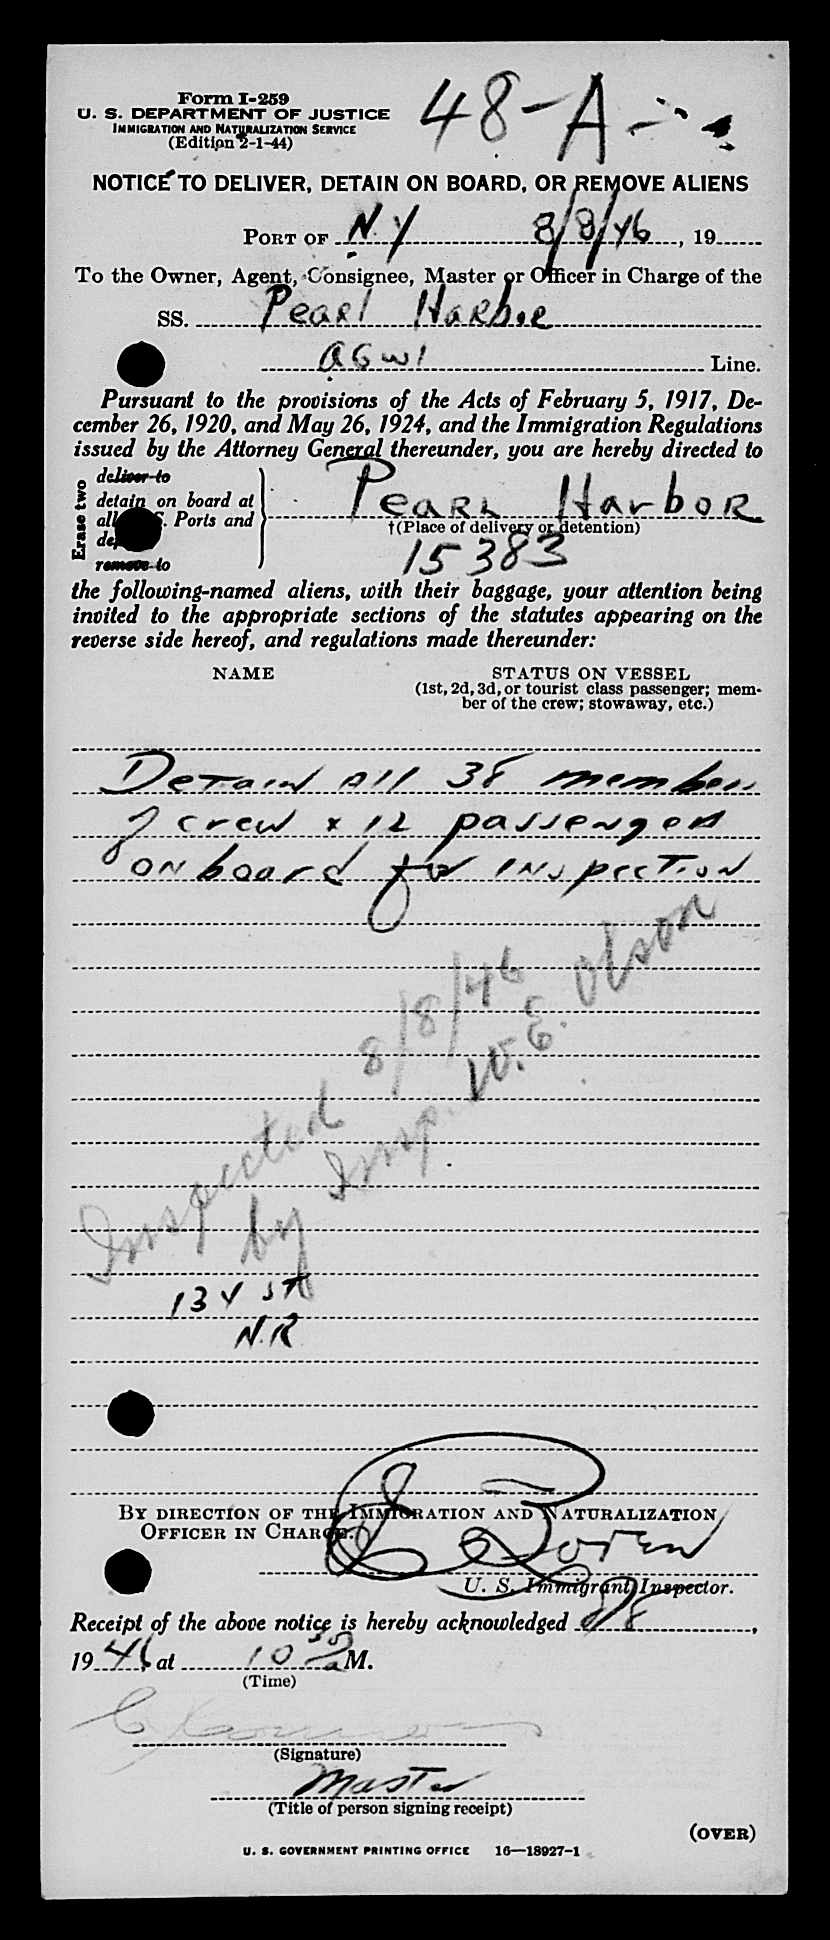 Form I-259
U. S. DEPARTMENT OF JUSTICE
IMMIGRATION AND NATURALIZATION SERVICE
(Edition 2-1-44)
48-A-
NOTICE TO DELIVER, DETAIN ON BOARD, OR REMOVE ALIENS
PORT OF N.Y 8/8/46, 19
To the Owner, Agent, Consignee, Master or Officer in Charge of the
SS. Pearl Harbor
AGWI Line.
Pursuant to the provisions of the Acts of February 5, 1917, De-
cember 26, 1920, and May 26, 1924, and the Immigration Regulations
issued by the Attorney General thereunder, you are hereby directed to
Erase two
deliver to
detain on board at
all S. Ports and
remove to
Pearl Harbor
†(Place of delivery or detention)
15383
the following-named aliens, with their baggage, your attention being
invited to the appropriate sections of the statutes appearing on the
reverse side hereof, and regulations made thereunder:
NAME
STATUS ON VESSEL
(1st, 2d, 3d, or tourist class passenger; mem-
ber of the crew; stowaway, etc.)
Detain all 38 members
of crew & 12 passengers
on board for inspection
Inspected 8/8/46
by Insp. W. E. Olson
134 ST
N.R
BY DIRECTION OF THE IMMIGRATION AND NATURALIZATION
OFFICER IN CHARGE.
U. S. Immigrant Inspector.
Receipt of the above notice is hereby acknowledged 8/8,
1946 at 10 30 a M.
(Time)
(Signature)
Master
(Title of person signing receipt)
(OVER)
U. S. GOVERNMENT PRINTING OFFICE 16—18927-1